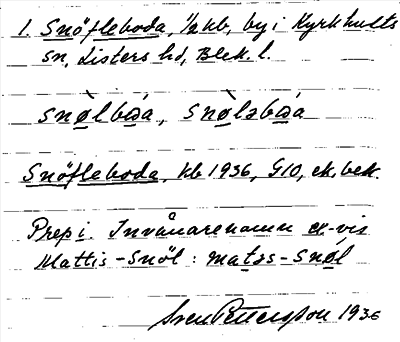 1. Snöfleboda, 1/2 kb, by i Kyrkhults
sn, Listers hd, Blek. l.
snø̀lbωa, snø̀ləbωa
Snöfleboda, kb 1936, G10, ek. bek.
Prep i. Invånarenamn ex-vis
Mattis-Snöl : matəs-snøl
Sven Pettersson 1936